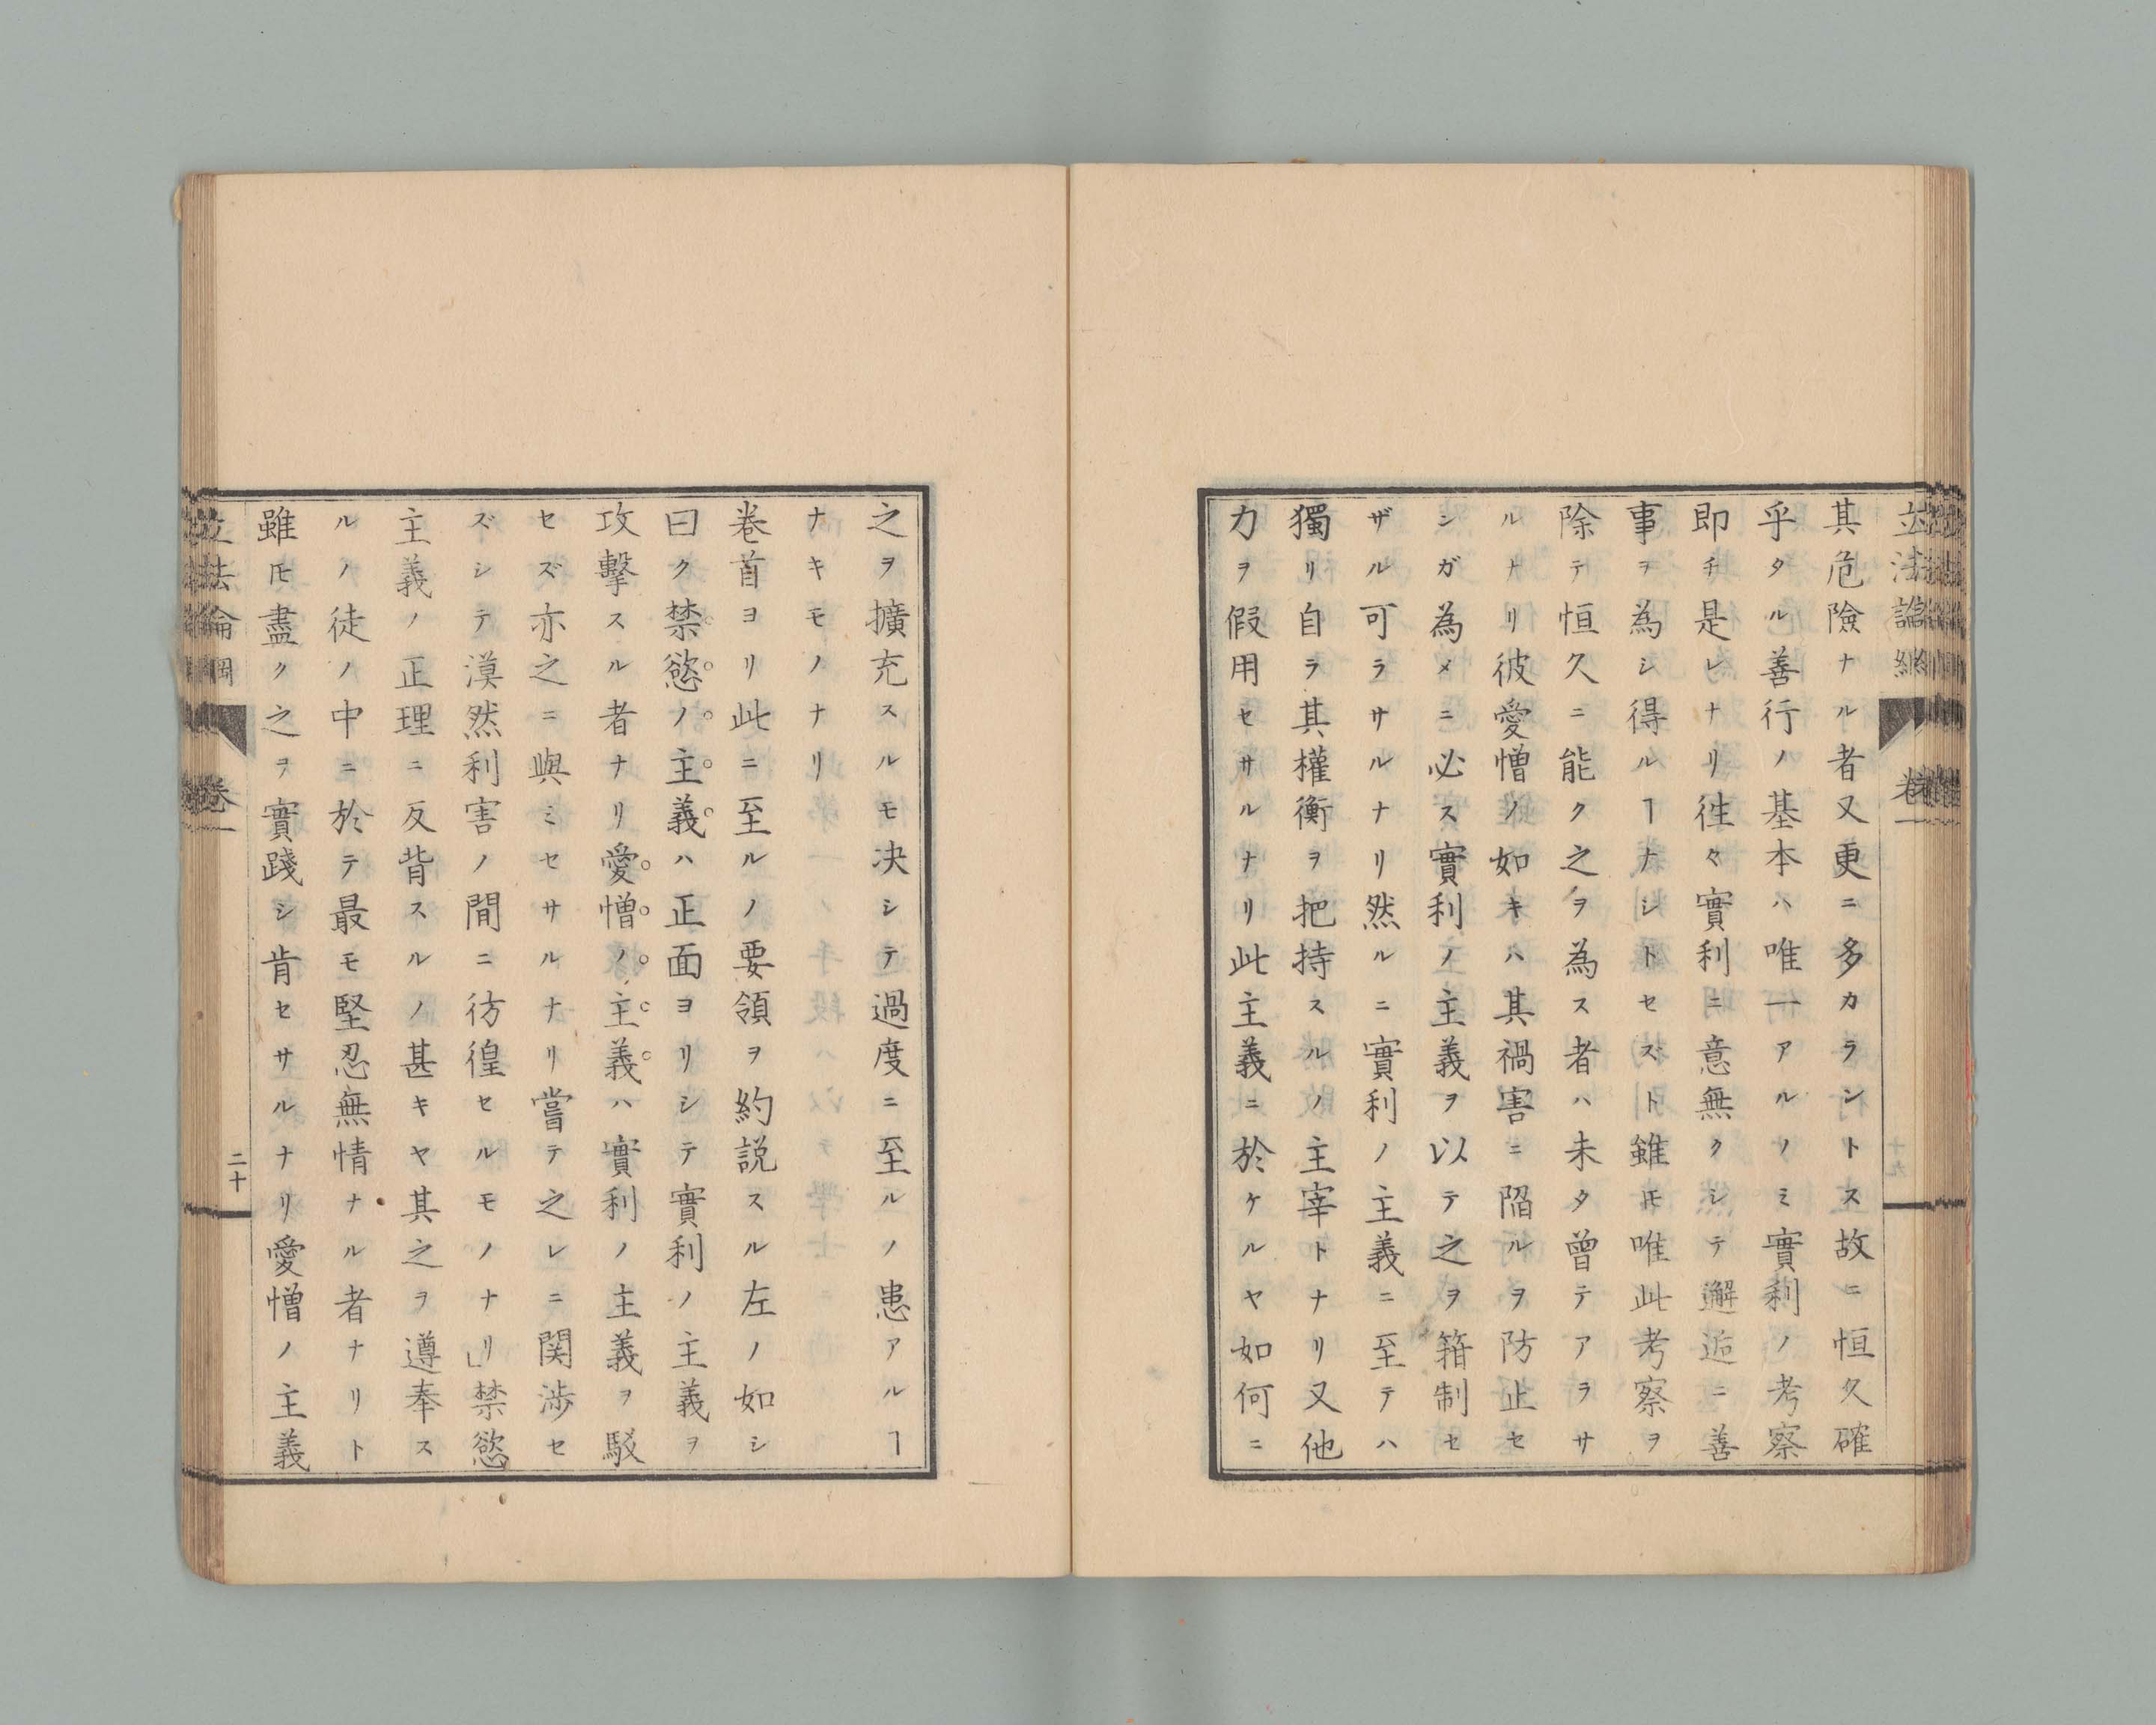 立法論綱 卷一
其危險ナル者又更ニ多カラントス故ニ恒久確
乎タル善行ノ基本ハ唯一アルノミ實利ノ考察
即チ是レナリ徃々實利ニ意無クシテ邂逅ニ善
事ヲ為シ得ルヿナシトセズト雖𪜈唯此考察ヲ
除テ恒久ニ能ク之ヲ為ス者ハ未タ曾テアラサ
ルナリ彼愛憎ノ如キハ其禍害ニ陷ルヲ防止セ
シガ為メニ必ス實利ノ主義ヲ以テ之ヲ箝制セ
ザル可ラサルナリ然ルニ實利ノ主義ニ至テハ
獨リ自ラ其權衡ヲ把持スルノ主宰トナリ又他
力ヲ假用セサルナリ此主義ニ於ケルヤ如何ニ
之ヲ擴充スルモ决シテ過度ニ至ルノ患アルヿ
ナキモノナリ
卷首ヨリ此ニ至ルノ要領ヲ約説スル左ノ如シ
曰ク禁慾ノ主義ハ正面ヨリシテ實利ノ主義ヲ
攻擊スル者ナリ愛憎ノ主義ハ實利ノ主義ヲ駁
セズ亦之ニ與ミセサルナリ嘗テ之レニ関渉セ
ズシテ漠然利害ノ間ニ彷徨セルモノナリ」禁慾
主義ノ正理ニ反背スルノ甚キヤ其之ヲ遵奉ス
ルノ徒ノ中ニ於テ最モ堅忍無情ナル者ナリト
雖𪜈盡ク之ヲ實踐シ肯セサルナリ愛憎ノ主義
立法論綱 卷一 二十